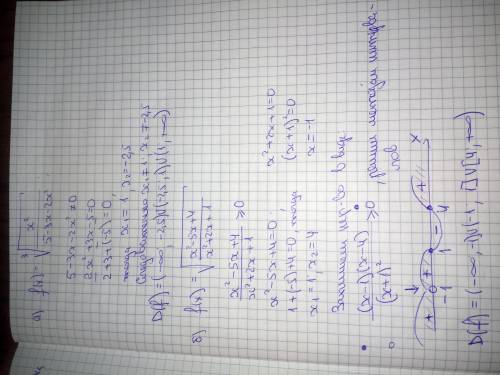 а) f(x) = ∛(x²/(5-3x-2x²))
5-3x-2x² ≠ 0
2x²+3x-5=0
2+3+(-5)=0,
тогда x₁=1, x₂=-2,5
Следовательно x₁≠1; x₂≠-2,5
D(f)=(-∞; -2,5)∪(-2,5; 1)∪(1; +∞)
б) f(x) = √((x²-5x+4)/(x²+2x+1))
(x²-5x+4)/(x²+2x+1) ≥0
x²-5x+4=0 x²+2x+1=0
1+(-5)+4=0, тогда (x+1)²=0
x₁=1, x₂=4 x=-1
Запишем нер-во в виде
(x-1)(x-4)/(x+1)² ≥0, решим методом интерва-
лов
+ + - + x
-1 1 4
D(f)=(-∞; -1)∪(-1; 1]∪[4; +∞)